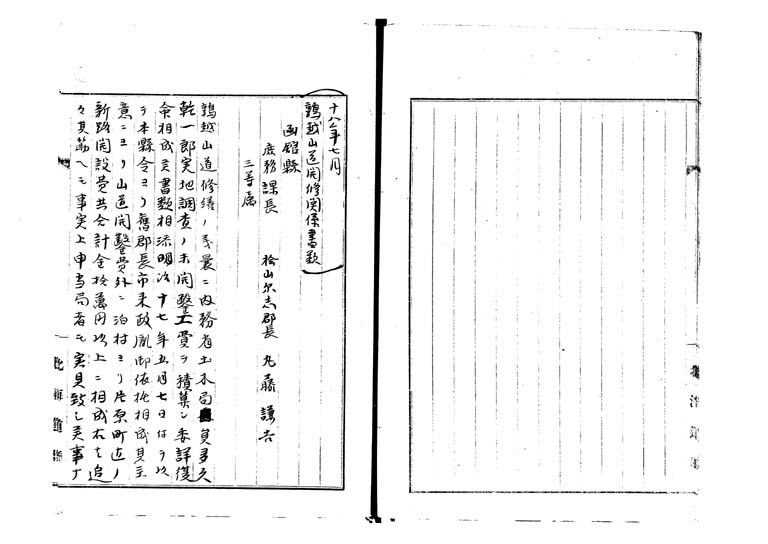 十八年七月
鶉越山道開修関係書類
函館縣
庶務課長
三等属
桧山尓志郡長 九藤謙吉
鶉越山道修繕ノ義曩ニ内務省土木局員多久
乾一郎実地調査ノ末開鑿工費ヲ積算シ委詳復
命相成其書類相添明治十七年五月七日付ヲ以
テ本縣令ヨリ舊郡長市来政胤御依托相成其主
意ニヨリ山道開鑿費外ニ泊村ヨリ片原町迠ノ
新路開設費共合計金拾萬円以上ニ相成右ハ追
々其筋ヘモ事実上申当局者モ実見致シ其事丁
北海道廳